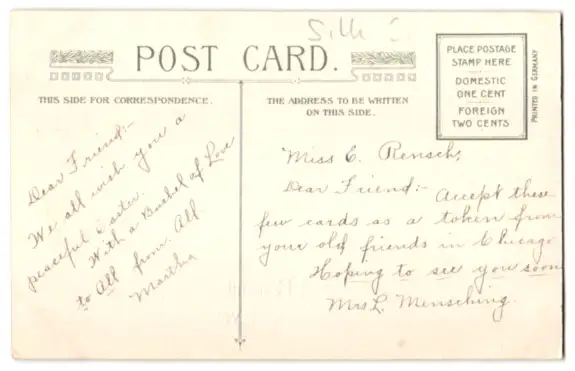 Silk
POST CARD.
THIS SIDE FOR CORRESPONDENCE.
THE ADDRESS TO BE WRITTEN
ON THIS SIDE.
PLACE POSTAGE
STAMP HERE
DOMESTIC
ONE CENT
FOREIGN
TWO CENTS
PRINTED IN GERMANY
Dear Friend:-
We all wish you a
peaceful Easter.
With a Bushel of Love
to All from All
Martha
Miss C. Rensch,
Dear Friend:- Accept these
few cards as a token from
your old friends in Chicago
Hoping to see you soon
Mrs L. Mensching.